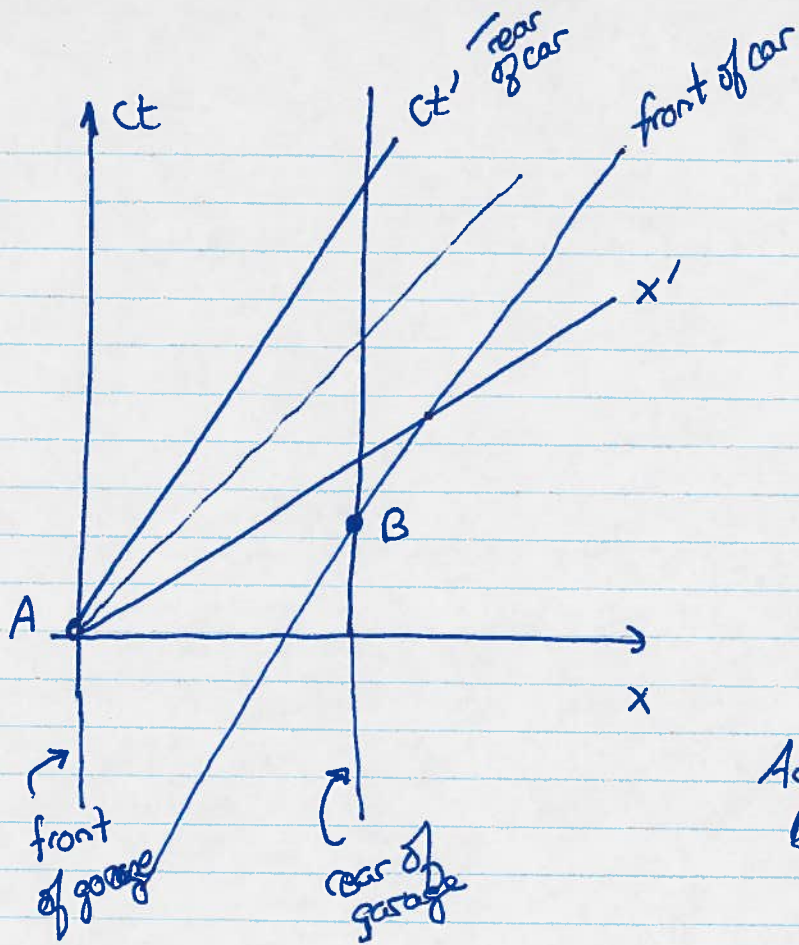 ct
ct' rear
of car
front of car
x'
B
A
x
front
of garage
rear of
garage